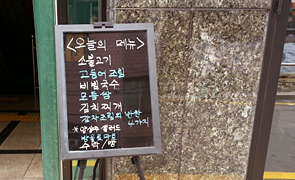 <오늘의 메뉴>
소불고기
고등어 조림
비빔국수
모듬 쌈
김치찌개
감자조림외 반찬
4가지
* 양상추 샐러드
방울토마토
수육 / 빵